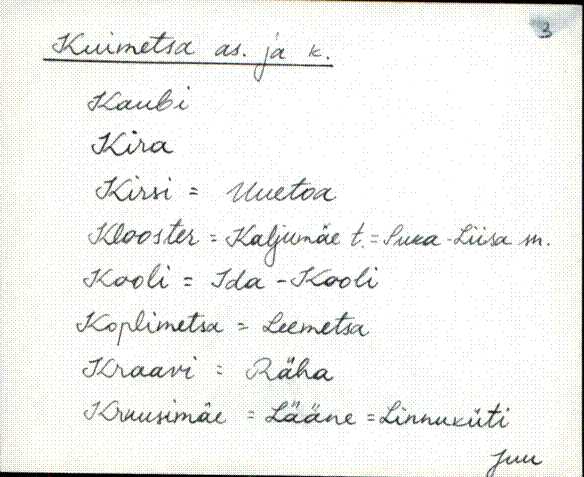 3
Kuimetsa as. ja k.
Kaubi
Kira
Kirsi = Uuetoa
Klooster = Kaljumäe t. = Suka-Liisa m.
Kooli = Ida-Kooli
Koplimetsa = Leemetsa
Kraavi = Räha
Kruusimäe = Lääne = Linnuküti
Juu